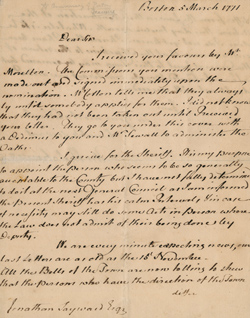 Boston 5 March 1771
Dear Sir
I received your favour by Mr
Moulton. The Commissions you mention were
made out and signed immediately upon the
nomination. Mr Cotton tells me they always
lay until somebody applies for them. I did not know
that they had not been taken out until I received
your letter. They go to you under this cover with
a Dedimus to you and Mr Sewall to administer the
Oaths.
I grieve for the Sheriff. It is my purpose
to appoint the person who seems to be so generally
acceptable to the County but I have not fully determined
to do it at the next General Council as I am informed
the present Sheriff has his calm Intervals & in case
of necessity may still do some Acts in person where
the Law does not admit of their being done by
Deputy.
We are every minute expecting news, our
last Letters are as old as the 16th November.
All the Bells of the Town are now tolling to shew
that the persons who have the direction of the Town
Jonathan Sayward Esqr